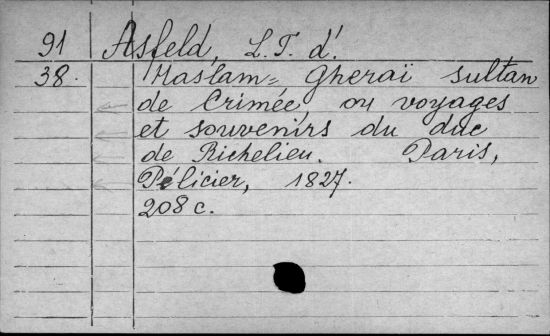 91 Asfeld, L. T. d'.
38. Haslam-Gheraï sultan
de Crimée ou voyages
et souvenirs du duc
de Richelieu. Paris,
Pélicier, 1827.
208 c.